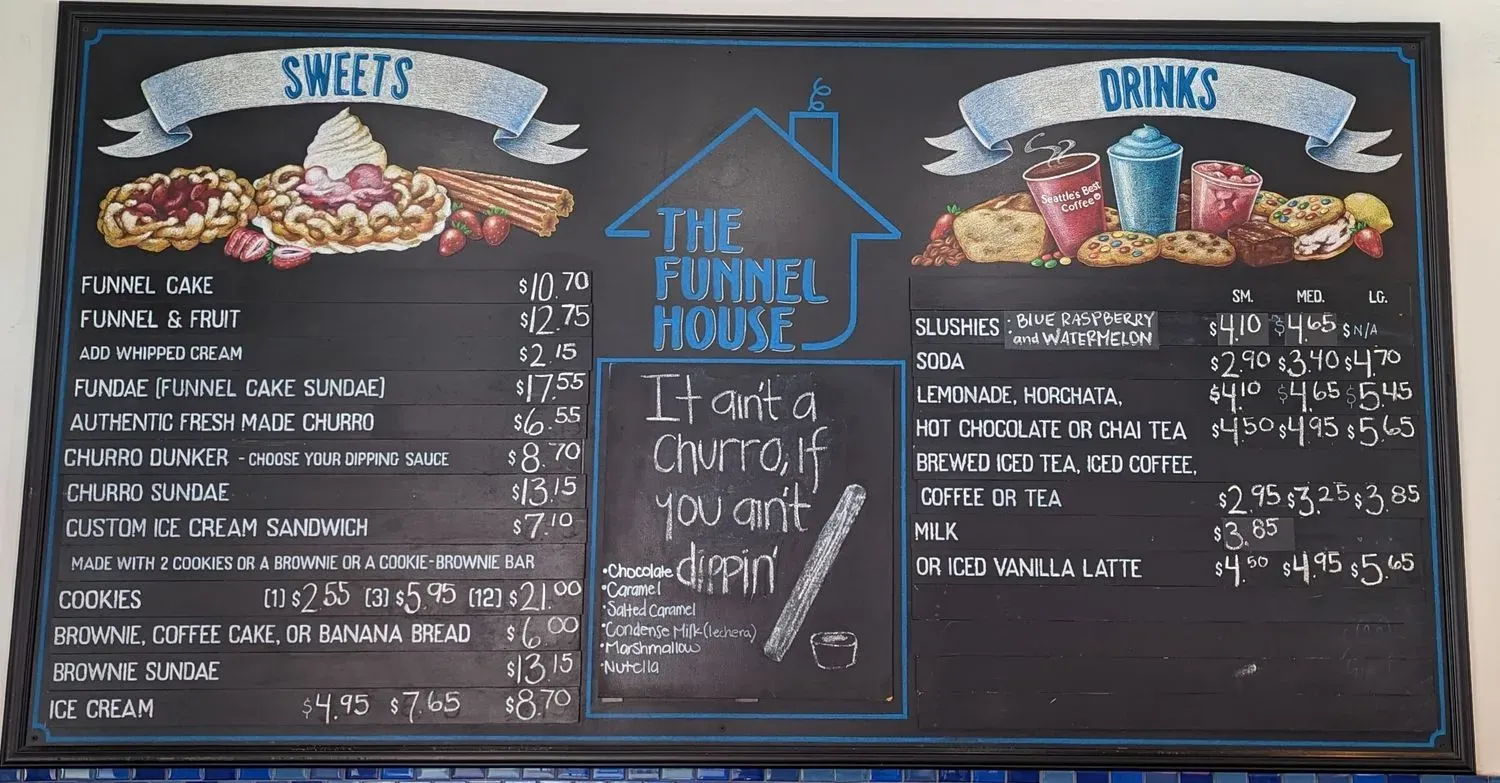 SWEETS
FUNNEL CAKE $10.70
FUNNEL & FRUIT $12.75
ADD WHIPPED CREAM $2.15
FUNDAE (FUNNEL CAKE SUNDAE) $17.55
AUTHENTIC FRESH MADE CHURRO $6.55
CHURRO DUNKER - CHOOSE YOUR DIPPING SAUCE $8.70
CHURRO SUNDAE $13.15
CUSTOM ICE CREAM SANDWICH $7.10
MADE WITH 2 COOKIES OR A BROWNIE OR A COOKIE-BROWNIE BAR
COOKIES (1) $2.55 (3) $5.95 (12) $21.00
BROWNIE, COFFEE CAKE, OR BANANA BREAD $6.00
BROWNIE SUNDAE $13.15
ICE CREAM $4.95 $7.65 $8.70
THE
FUNNEL
HOUSE
It ain't a
Churro, If
you ain't
dippin'
•Chocolate
•Caramel
•Salted Caramel
•Condense Milk (lechera)
•Marshmallow
•Nutella
DRINKS
Seattle's Best
Coffee
SM. MED. LG.
SLUSHIES : BLUE RASPBERRY $4.10 $4.65 $N/A
and WATERMELON
SODA $2.90 $3.40 $4.70
LEMONADE, HORCHATA, $4.10 $4.65 $5.45
HOT CHOCOLATE OR CHAI TEA $4.50 $4.95 $5.65
BREWED ICED TEA, ICED COFFEE,
COFFEE OR TEA $2.95 $3.25 $3.85
MILK $3.85
OR ICED VANILLA LATTE $4.50 $4.95 $5.65